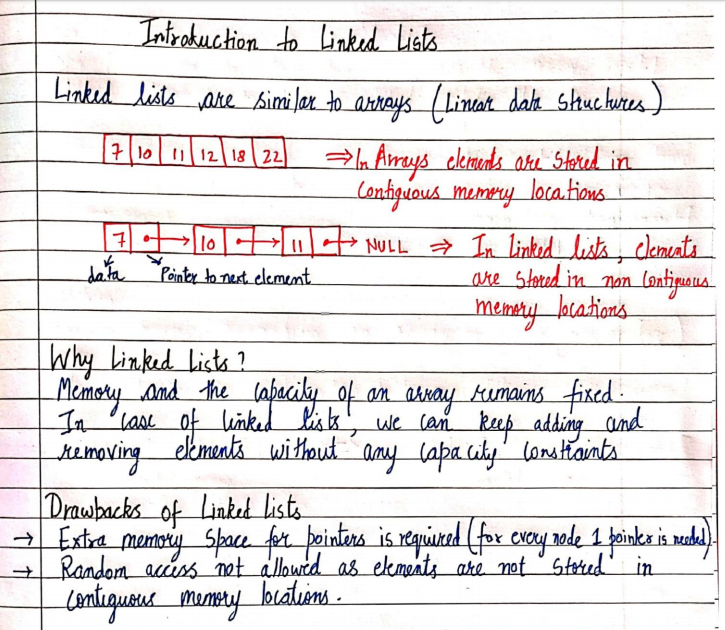 Introduction to Linked Lists
Linked lists are similar to arrays (Linear data structures)
7 10 11 12 18 22 ⇒ In Arrays elements are stored in
contiguous memory locations
7 → 10 → 11 → NULL ⇒ In linked lists, elements
data Pointer to next element are stored in non contiguous
memory locations
Why Linked Lists?
Memory and the capacity of an array remains fixed.
In case of linked lists, we can keep adding and
removing elements without any capacity constraints
Drawbacks of Linked Lists
→ Extra memory space for pointers is required (for every node 1 pointer is needed)
→ Random access not allowed as elements are not stored in
contiguous memory locations.